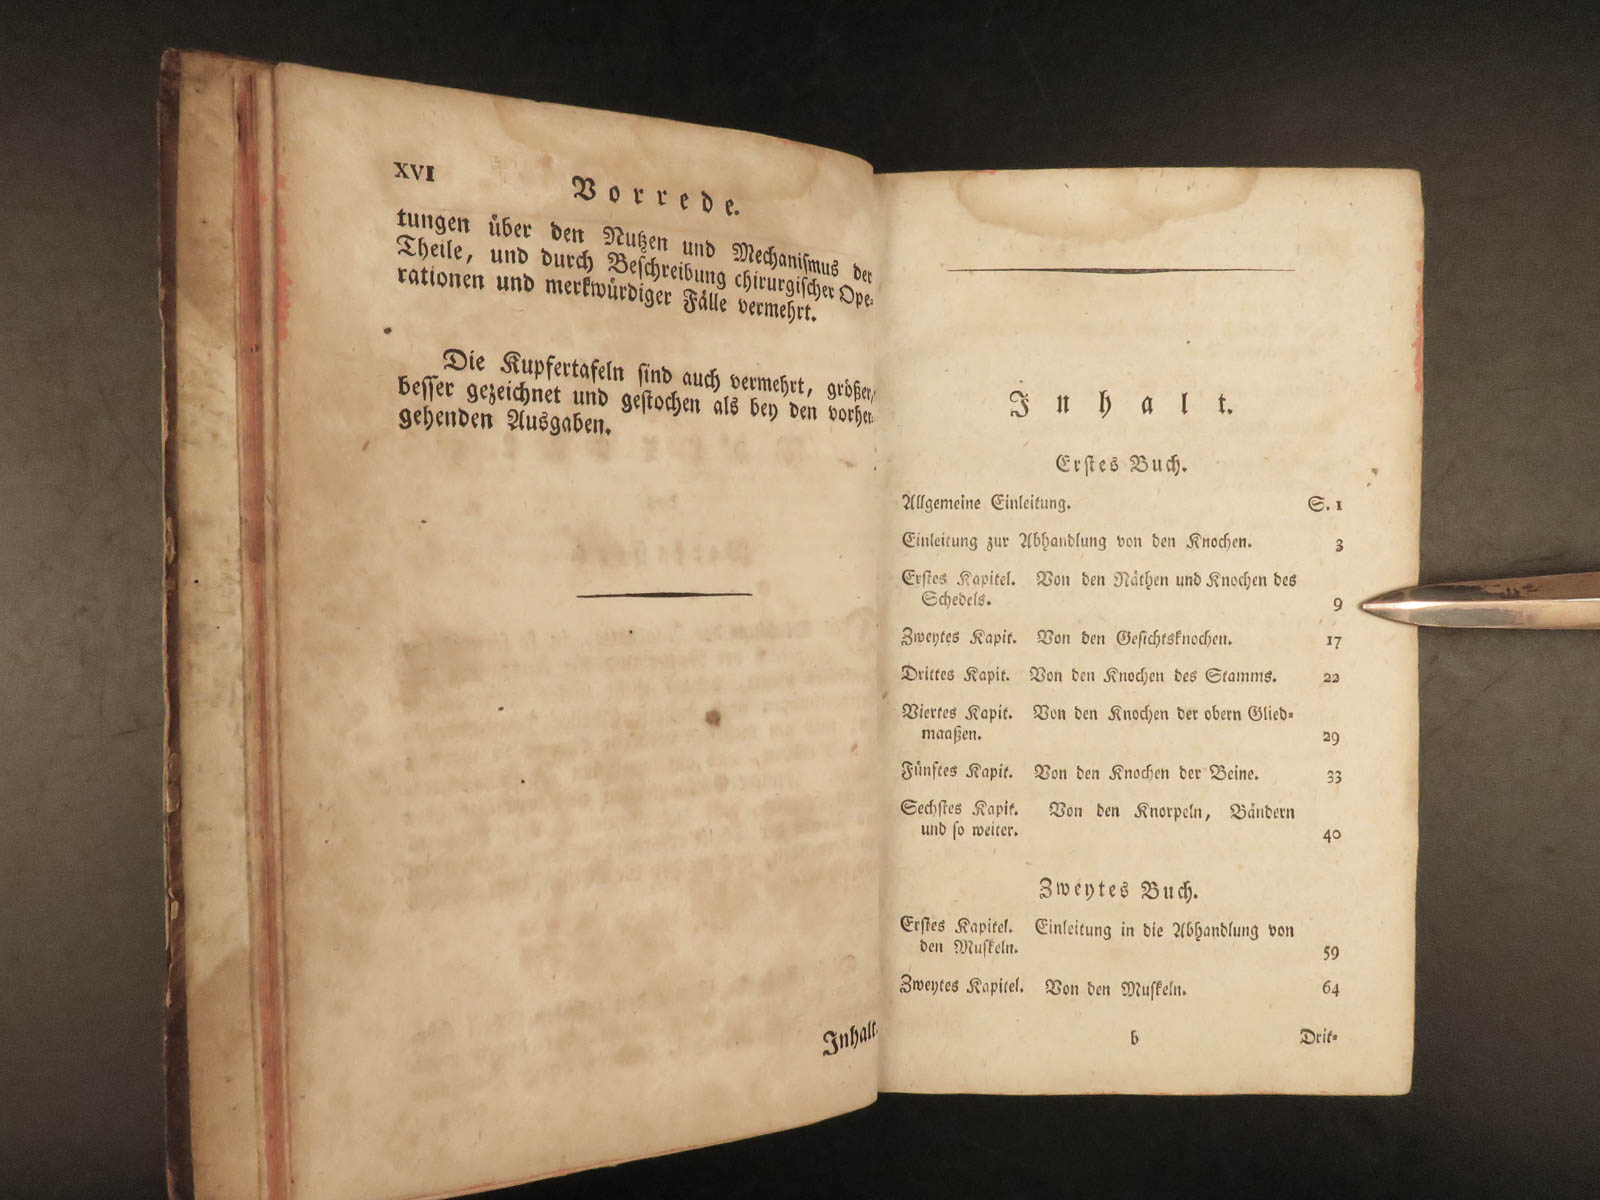 XVI
Vorrede.
tungen über den Nutzen und Mechanismus der
Theile, und durch Beschreibung chirurgischer Ope-
rationen und merkwürdiger Fälle vermehrt.
Die Kupfertafeln sind auch vermehrt, größer,
besser gezeichnet und gestochen als bey den vorher-
gehenden Ausgaben.
Inhalt.
Inhalt.
Erstes Buch.
Allgemeine Einleitung. S. 1
Einleitung zur Abhandlung von den Knochen. 3
Erstes Kapitel. Von den Näthen und Knochen des
Schedels. 9
Zweytes Kapit. Von den Gesichtsknochen. 17
Drittes Kapit. Von den Knochen des Stamms. 22
Viertes Kapit. Von den Knochen der obern Glied-
maaßen. 29
Fünftes Kapit. Von den Knochen der Beine. 33
Sechstes Kapit. Von den Knorpeln, Bändern
und so weiter. 40
Zweytes Buch.
Erstes Kapitel. Einleitung in die Abhandlung von
den Muskeln. 59
Zweytes Kapitel. Von den Muskeln. 64
b Drit-